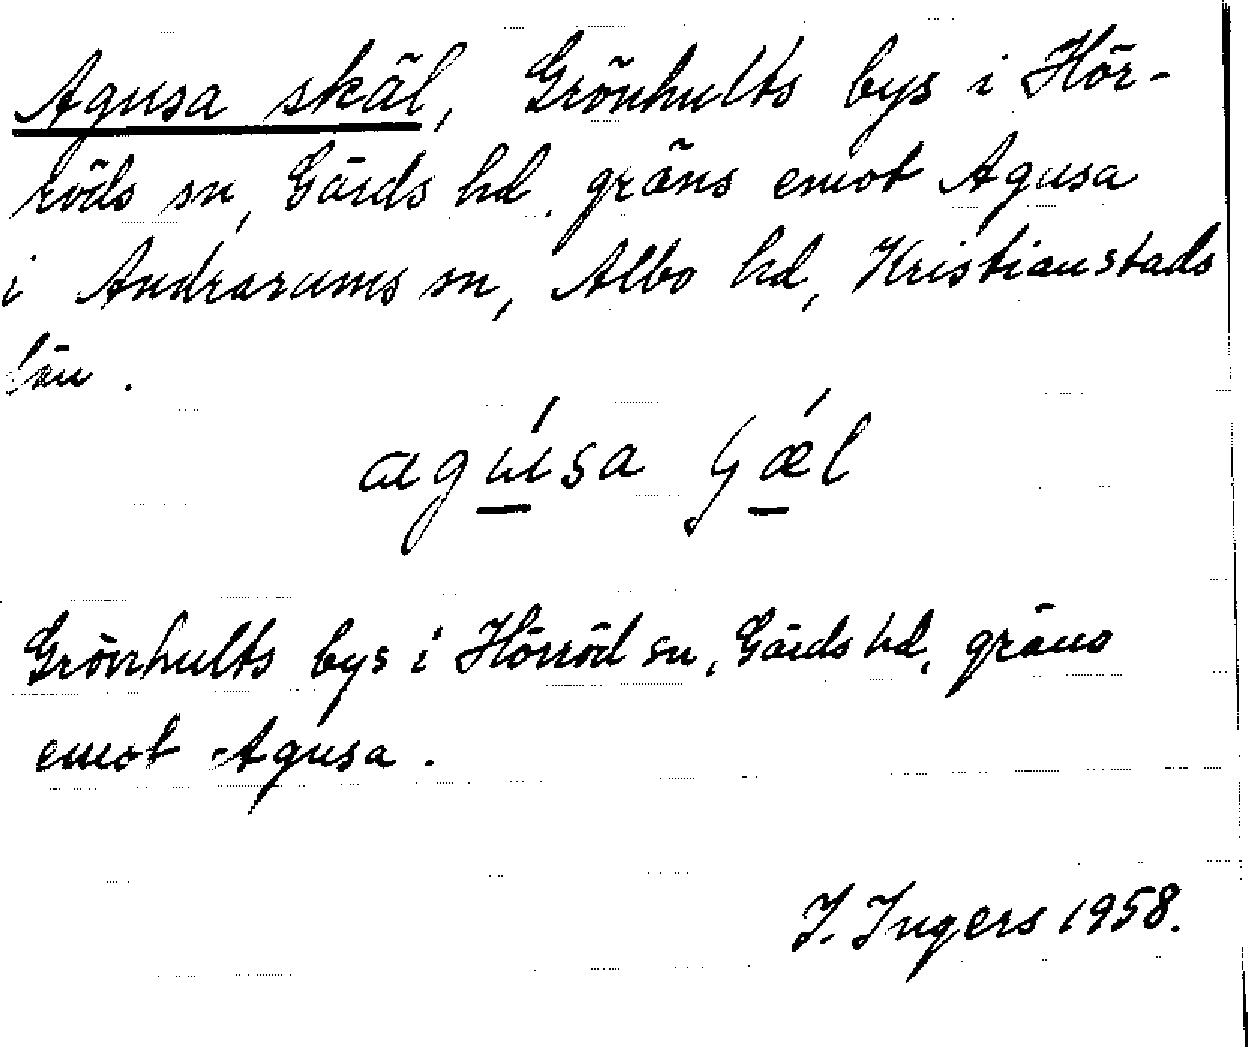 Agusa skäl, Grönhults bys i Hör-
röds sn, Gärds hd. gräns emot Agusa
i Andrarums sn, Albo hd, Kristianstads
län.
agúsa ʃǽl
Grönhults bys i Hörröd sn, Gärds hd, gräns
emot Agusa.
I. Ingers 1958.